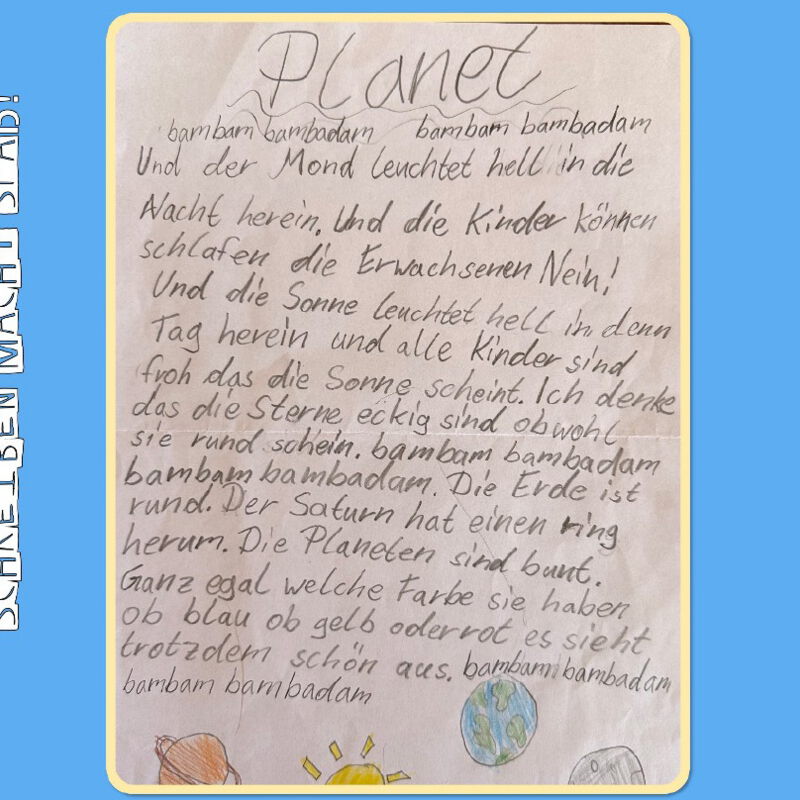 SCHREIBEN MACHT SPAß!
Planet
bambam bambadam bambam bambadam
Und der Mond leuchtet hell in die
Nacht herein. Und die Kinder können
schlafen die Erwachsenen Nein!
Und die Sonne leuchtet hell in denn
Tag herein und alle Kinder sind
froh das die Sonne scheint. Ich denke
das die Sterne eckig sind obwohl
sie rund schein. bambam bambadam
bambam bambadam. Die Erde ist
rund. Der Saturn hat einen ring
herum. Die Planeten sind bunt.
Ganz egal welche Farbe sie haben
ob blau ob gelb oder rot es sieht
trotzdem schön aus. bambam bambadam
bambam bambadam